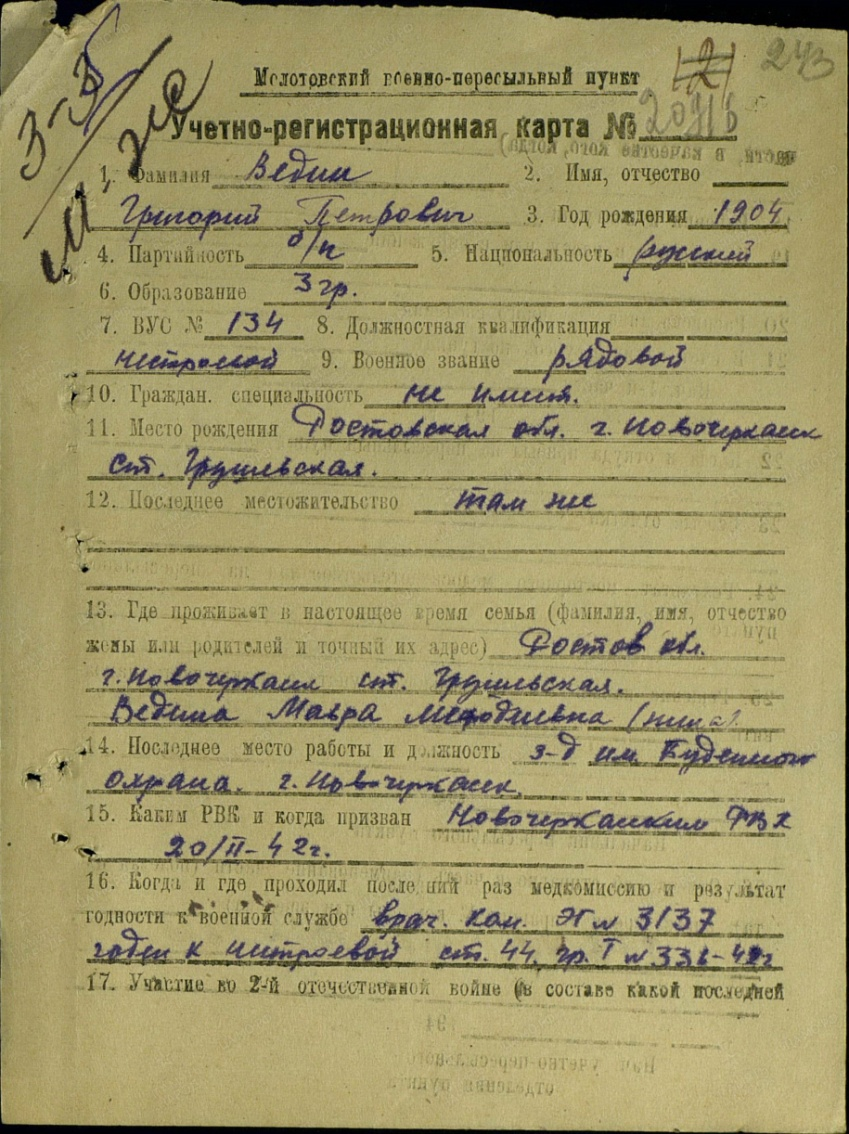 243
Молотовский военно-пересыльный пункт
Учетно-регистрационная карта №
1. Фамилия Ведин 2. Имя, отчество
Григорий Петрович 3. Год рождения 1904
4. Партийность б/п 5. Национальность русский
6. Образование 3 гр.
7. ВУС № 134 8. Должностная квалификация
нестроевой 9. Военное звание рядовой
10. Граждан. специальность не имеет.
11. Место рождения Ростовская обл. г. Новочеркасск
ст. Грушевская.
12. Последнее местожительство там же
13. Где проживает в настоящее время семья (фамилия, имя, отчество
жены или родителей и точный их адрес) Ростов обл.
г. Новочеркасск ст. Грушевская.
Ведина Мавра Мефодиевна (жена).
14. Последнее место работы и должность з-д им. Буденного
охрана. г. Новочеркасск.
15. Каким РВК и когда призван Новочеркасским РВК
20/II-42 г.
16. Когда и где проходил последний раз медкомиссию и результат
годности к военной службе врач. ком. ЭГ № 3137
годен к нестроевой ст. 44, гр. I № 336-42 г
17. Участие во 2-й отечественной войне (в составе какой последней